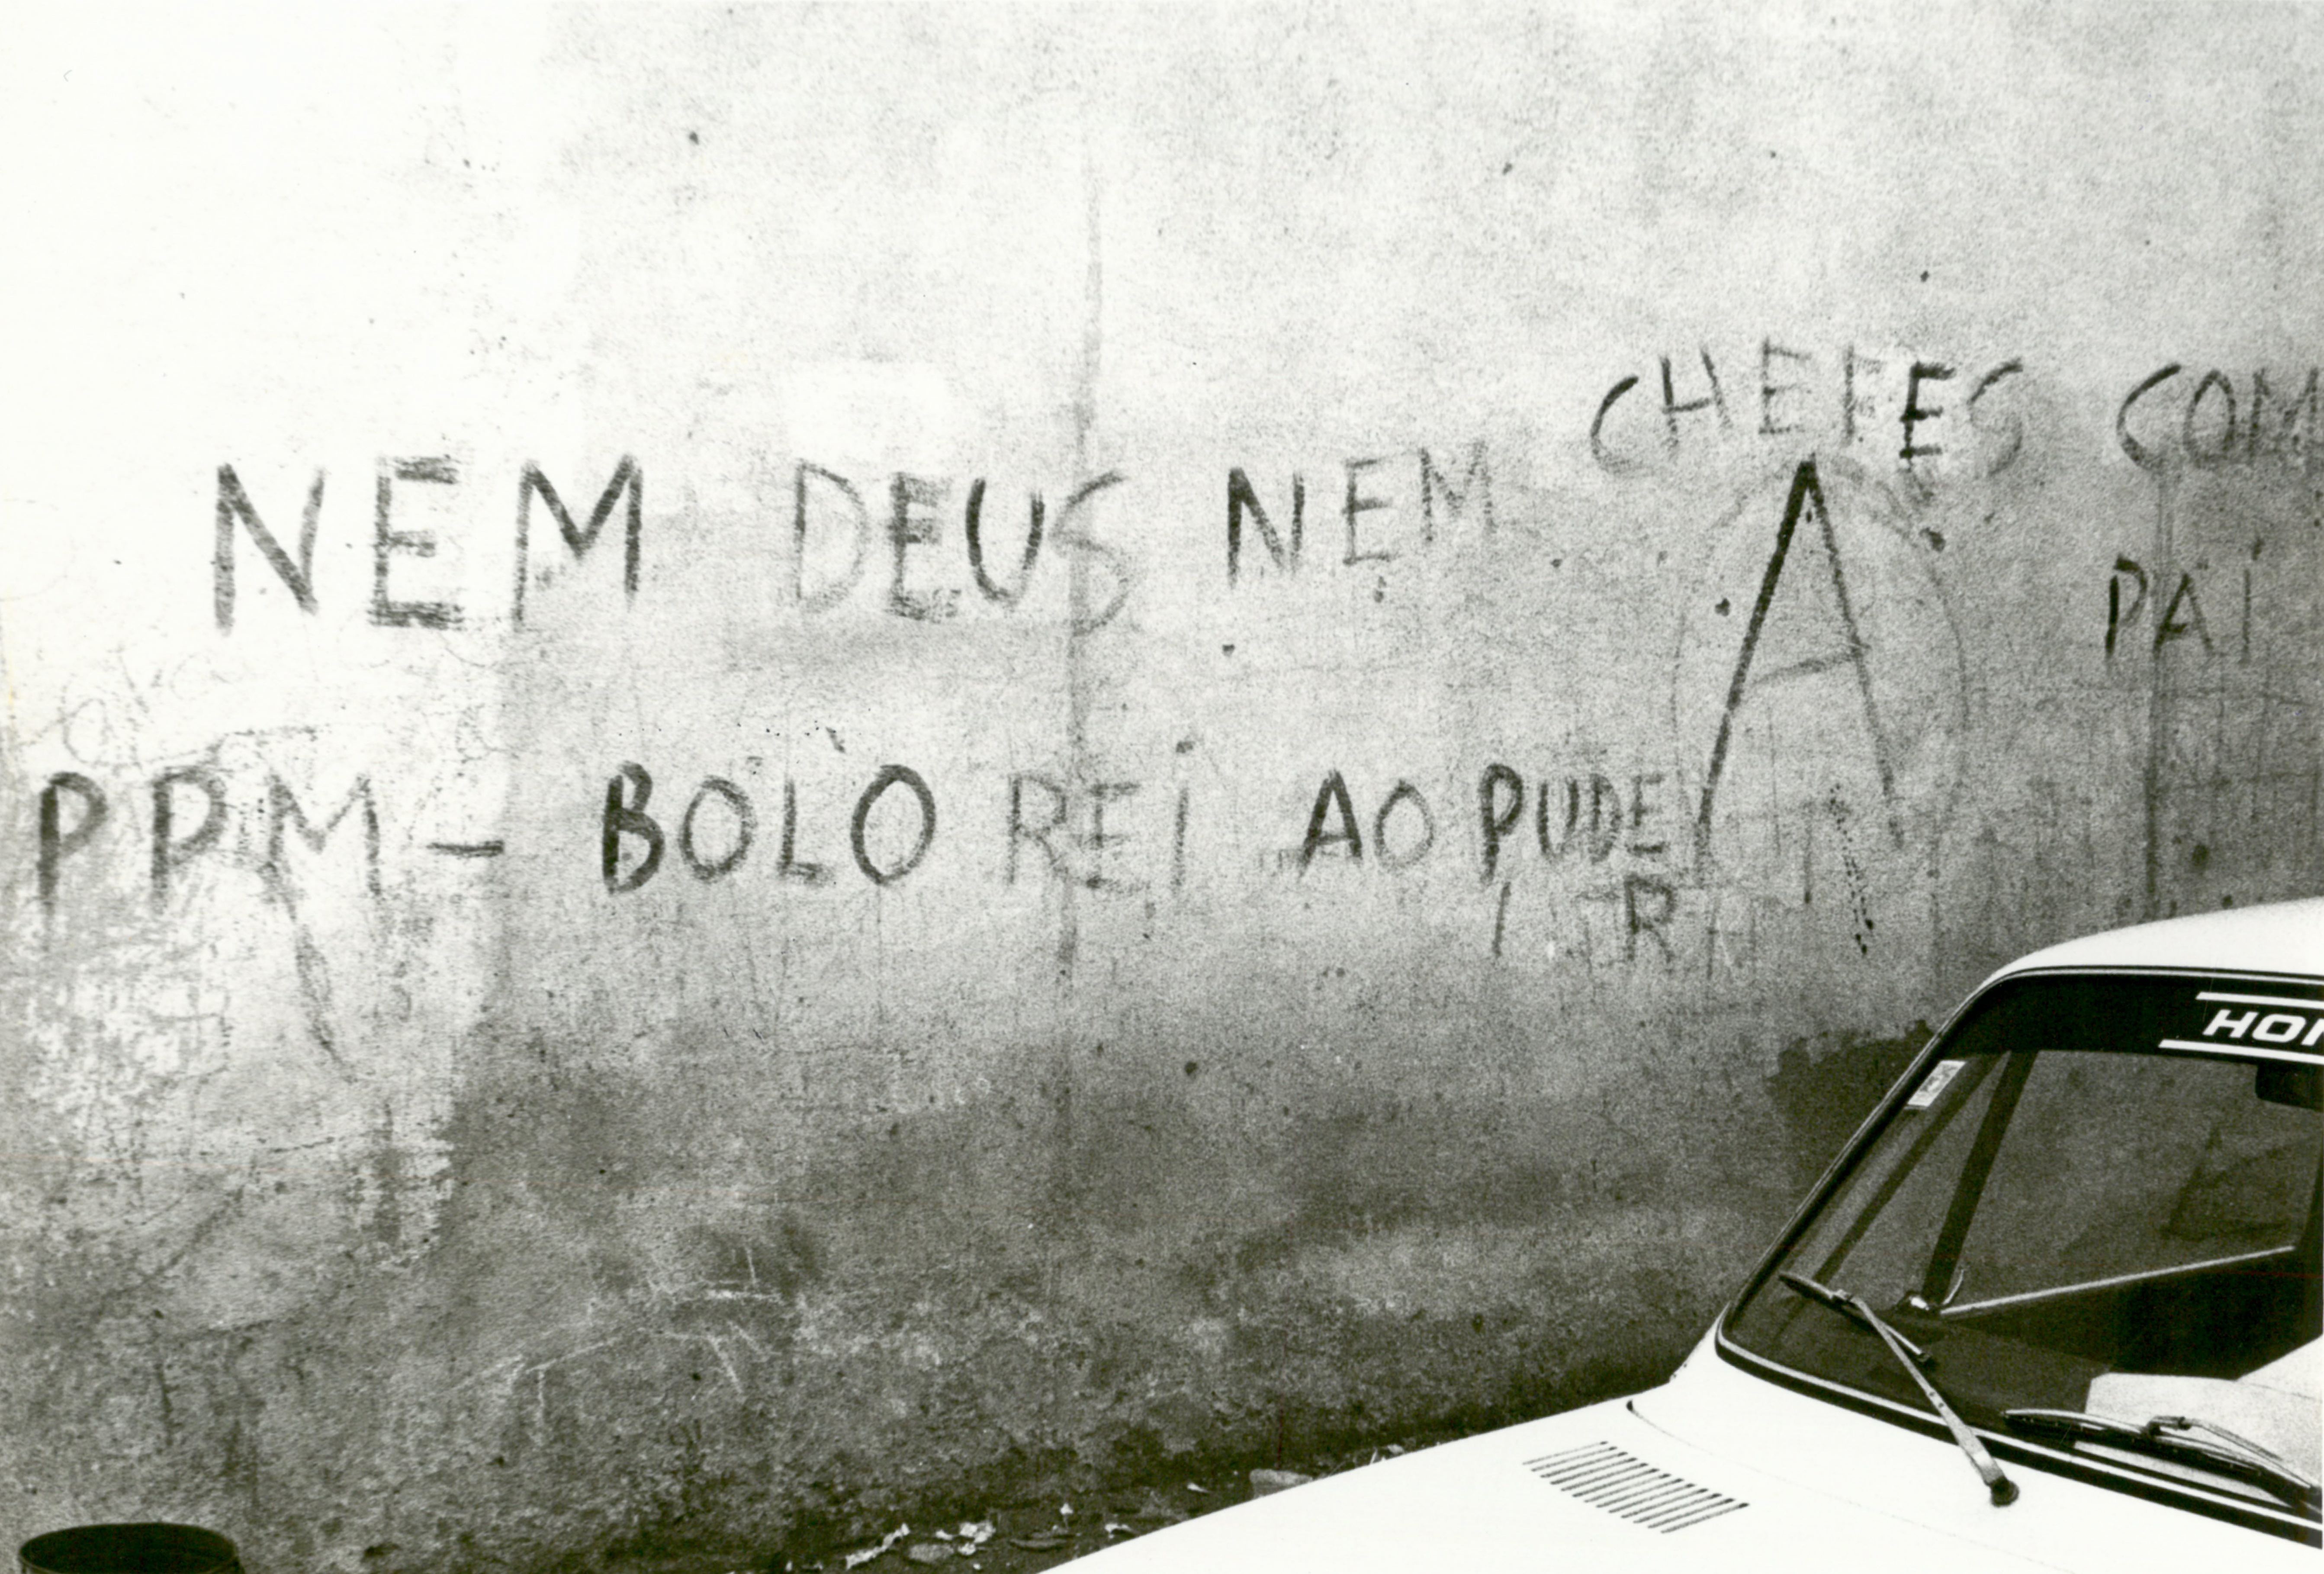 NEM DEUS NEM CHEFES COM
PAI
A
PPM - BOLO REI AO PUDE
R
HON